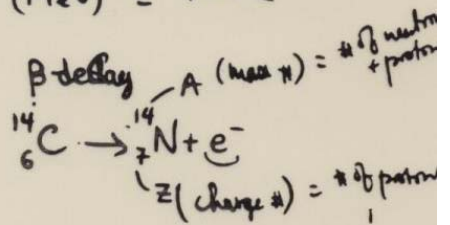 (MeV) =
β decay
A (mass #) = # of neutron
+ proton
¹⁴₆C → ¹⁴₇N + e⁻
Z (charge #) = # of proton